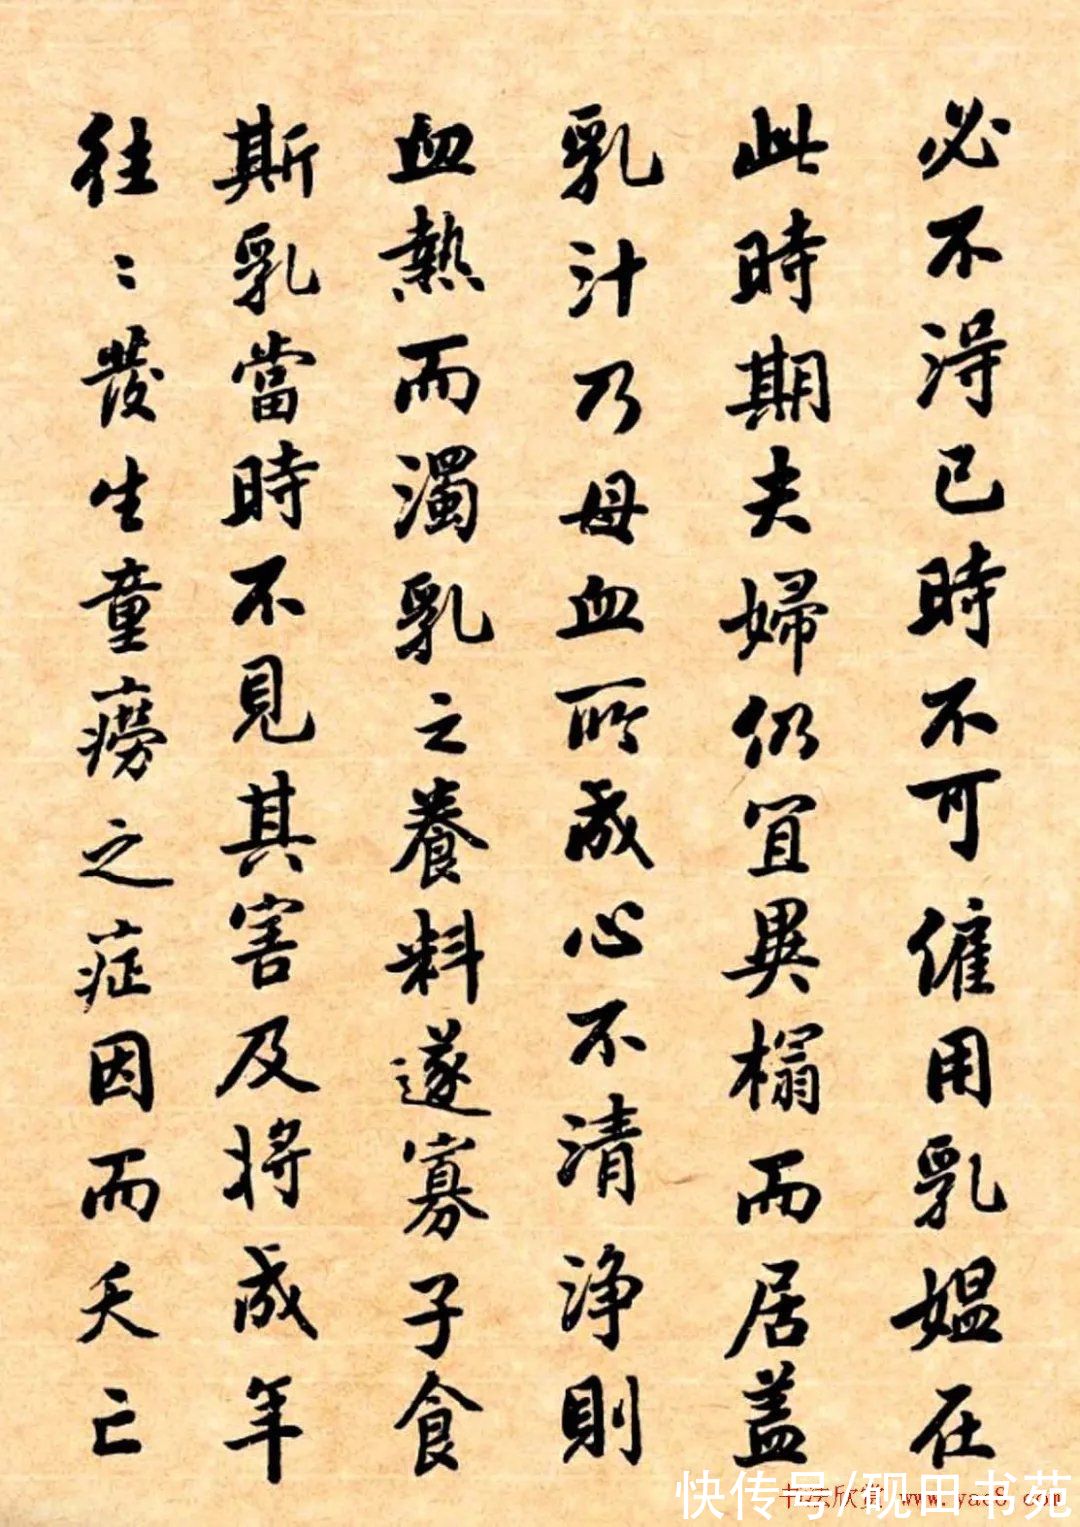 必不得已時不可僱用乳媼在
此時期夫婦仍宜異榻而居蓋
乳汁乃母血所成心不清淨則
血熱而濁乳之養料遂寡子食
斯乳當時不見其害及將成年
往々發生童癆之症因而夭亡
快传号/砚田书苑
书法欣赏 www.yac8.com